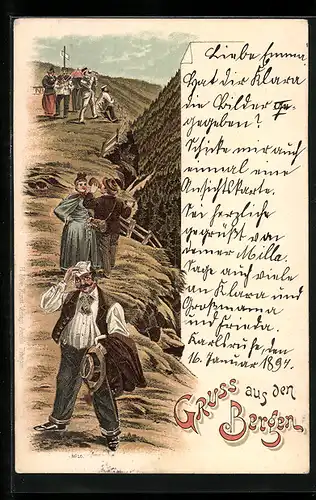 Liebe Emma
Hat dir Klara
die Bilder ge-
gegeben?
Schicke mir auch
einmal eine
Ansichtskarte.
Sei herzliche
gegrüßt von
deiner Milla.
Sage auch viele
an Klara und
Großmama
und Frieda.
Karlsruhe, den
16. Januar 1897.
Gruss aus den
Bergen